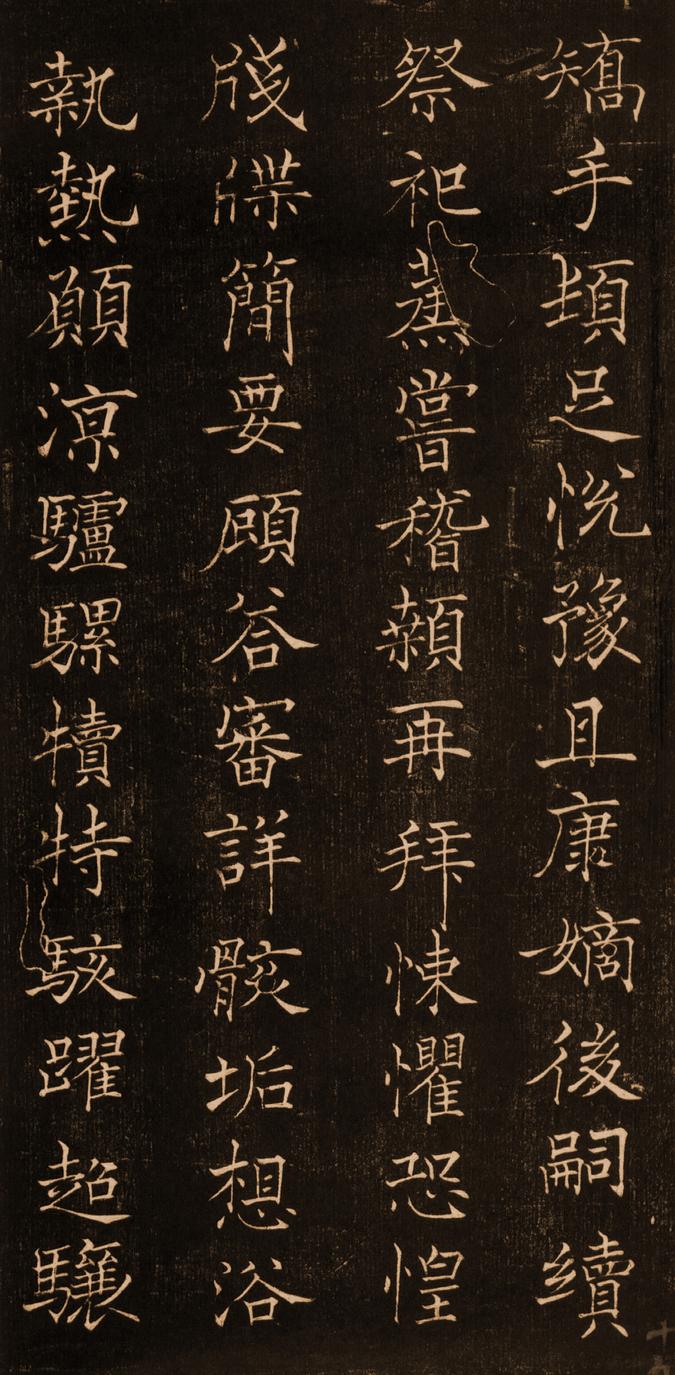 矯手頓足悅豫且康嫡後嗣續
祭祀蒸嘗稽顙再拜悚懼恐惶
牋牒簡要顧荅審詳骸垢想浴
執熱願涼驢騾犢特駭躍超驤